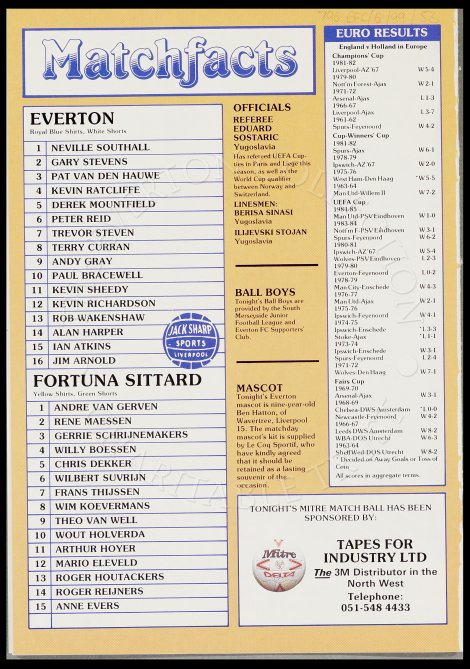 Matchfacts
EVERTON
Royal Blue Shirts, White Shorts
1 NEVILLE SOUTHALL
2 GARY STEVENS
3 PAT VAN DEN HAUWE
4 KEVIN RATCLIFFE
5 DEREK MOUNTFIELD
6 PETER REID
7 TREVOR STEVEN
8 TERRY CURRAN
9 ANDY GRAY
10 PAUL BRACEWELL
11 KEVIN SHEEDY
12 KEVIN RICHARDSON
13 ROB WAKENSHAW
14 ALAN HARPER
15 IAN ATKINS
16 JIM ARNOLD
JACK SHARP
SPORTS
LIVERPOOL
FORTUNA SITTARD
Yellow Shirts, Green Shorts
1 ANDRE VAN GERVEN
2 RENE MAESSEN
3 GERRIE SCHRIJNEMAKERS
4 WILLY BOESSEN
5 CHRIS DEKKER
6 WILBERT SUVRIJN
7 FRANS THIJSSEN
8 WIM KOEVERMANS
9 THEO VAN WELL
10 WOUT HOLVERDA
11 ARTHUR HOYER
12 MARIO ELEVELD
13 ROGER HOUTACKERS
14 ROGER REIJNERS
15 ANNE EVERS
OFFICIALS
REFEREE
EDUARD
SOSTARIC
Yugoslavia
Has refereed UEFA Cup-
ties in Paris and Liege this
season, as well as the
World Cup qualifier
between Norway and
Switzerland.
LINESMEN:
BERISA SINASI
Yugoslavia
ILIJEVSKI STOJAN
Yugoslavia
BALL BOYS
Tonight's Ball Boys are
provided by the South
Merseyside Junior
Football League and
Everton FC Supporters'
Club.
MASCOT
Tonight's Everton
mascot is nine-year-old
Ben Hatton, of
Wavertree, Liverpool
15. The matchday
mascot's kit is supplied
by Le Coq Sportif, who
have kindly agreed
that it should be
retained as a lasting
souvenir of the
occasion.
EURO RESULTS
England v Holland in Europe
Champions' Cup
1981-82
Liverpool-AZ'67 W 5-4
1979-80
Nott'm Forest-Ajax W 2-1
1971-72
Arsenal-Ajax L 1-3
1966-67
Liverpool-Ajax L 3-7
1961-62
Spurs-Feyenoord W 4-2
Cup-Winners' Cup
1981-82
Spurs-Ajax W 6-1
1978-79
Ipswich-AZ'67 W 2-0
1975-76
West Ham-Den Haag *W 5-5
1963-64
Man Utd-Willem II W 7-2
UEFA Cup
1984-85
Man Utd-PSV Eindhoven W 1-0
1983-84
Nott'm F-PSV Eindhoven W 3-1
Spurs-Feyenoord W 6-2
1980-81
Ipswich-AZ'67 W 5-4
Wolves-PSV Eindhoven L 2-3
1979-80
Everton-Feyenoord L 0-2
1978-79
Man City-Enschede W 4-3
1976-77
Man Utd-Ajax W 2-1
1975-76
Ipswich-Feyenoord W 4-1
1974-75
Ipswich-Enschede *L 3-3
Stoke-Ajax *L 1-1
1973-74
Ipswich-Enschede W 3-1
Spurs-Feyenoord L 2-4
1971-72
Wolves-Den Haag W 7-1
Fairs Cup
1969-70
Arsenal-Ajax W 3-1
1968-69
Chelsea-DWS Amsterdam *L 0-0
Newcastle-Feyenoord W 4-2
1966-67
Leeds-DWS Amsterdam W 8-2
WBA-DOS Utrecht W 6-3
1963-64
Sheff Wed-DOS Utrecht W 8-2
* Decided on Away Goals or Toss of
Coin
All scores in aggregate terms.
TONIGHT'S MITRE MATCH BALL HAS BEEN
SPONSORED BY:
Mitre
DELTA
TAPES FOR
INDUSTRY LTD
The 3M Distributor in the
North West
Telephone:
051-548 4433